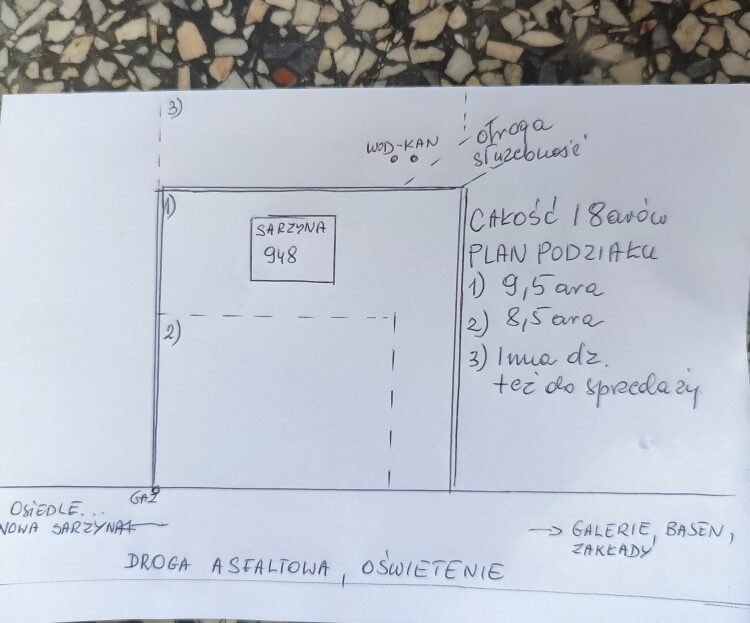 3)
WOD-KAN
droga
służebność
1)
SARZYNA
948
CAŁOŚĆ 18 arów
PLAN PODZIAŁU
1) 9,5 ara
2) 8,5 ara
3) Inna dz.
też do sprzedaży
2)
GAZ
OSIEDLE...
NOWA SARZYNA
GALERIE, BASEN,
ZAKŁADY
DROGA ASFALTOWA, OŚWIETENIE